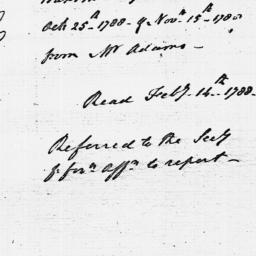 Oct 25.th 1788. & Nov.r 15.th 1788
from Mr Adams —
Read Feby. 14.th 1788.
Referred to the Secy
for forn. Affrs. to report —